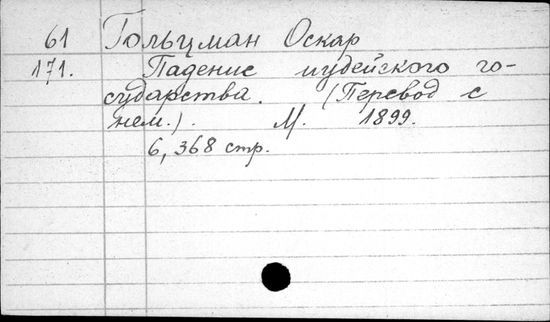 61 Гольцман Оскар
171. Падение иудейского го-
сударства. (Перевод с
нем.). М. 1899.
6, 368 стр.